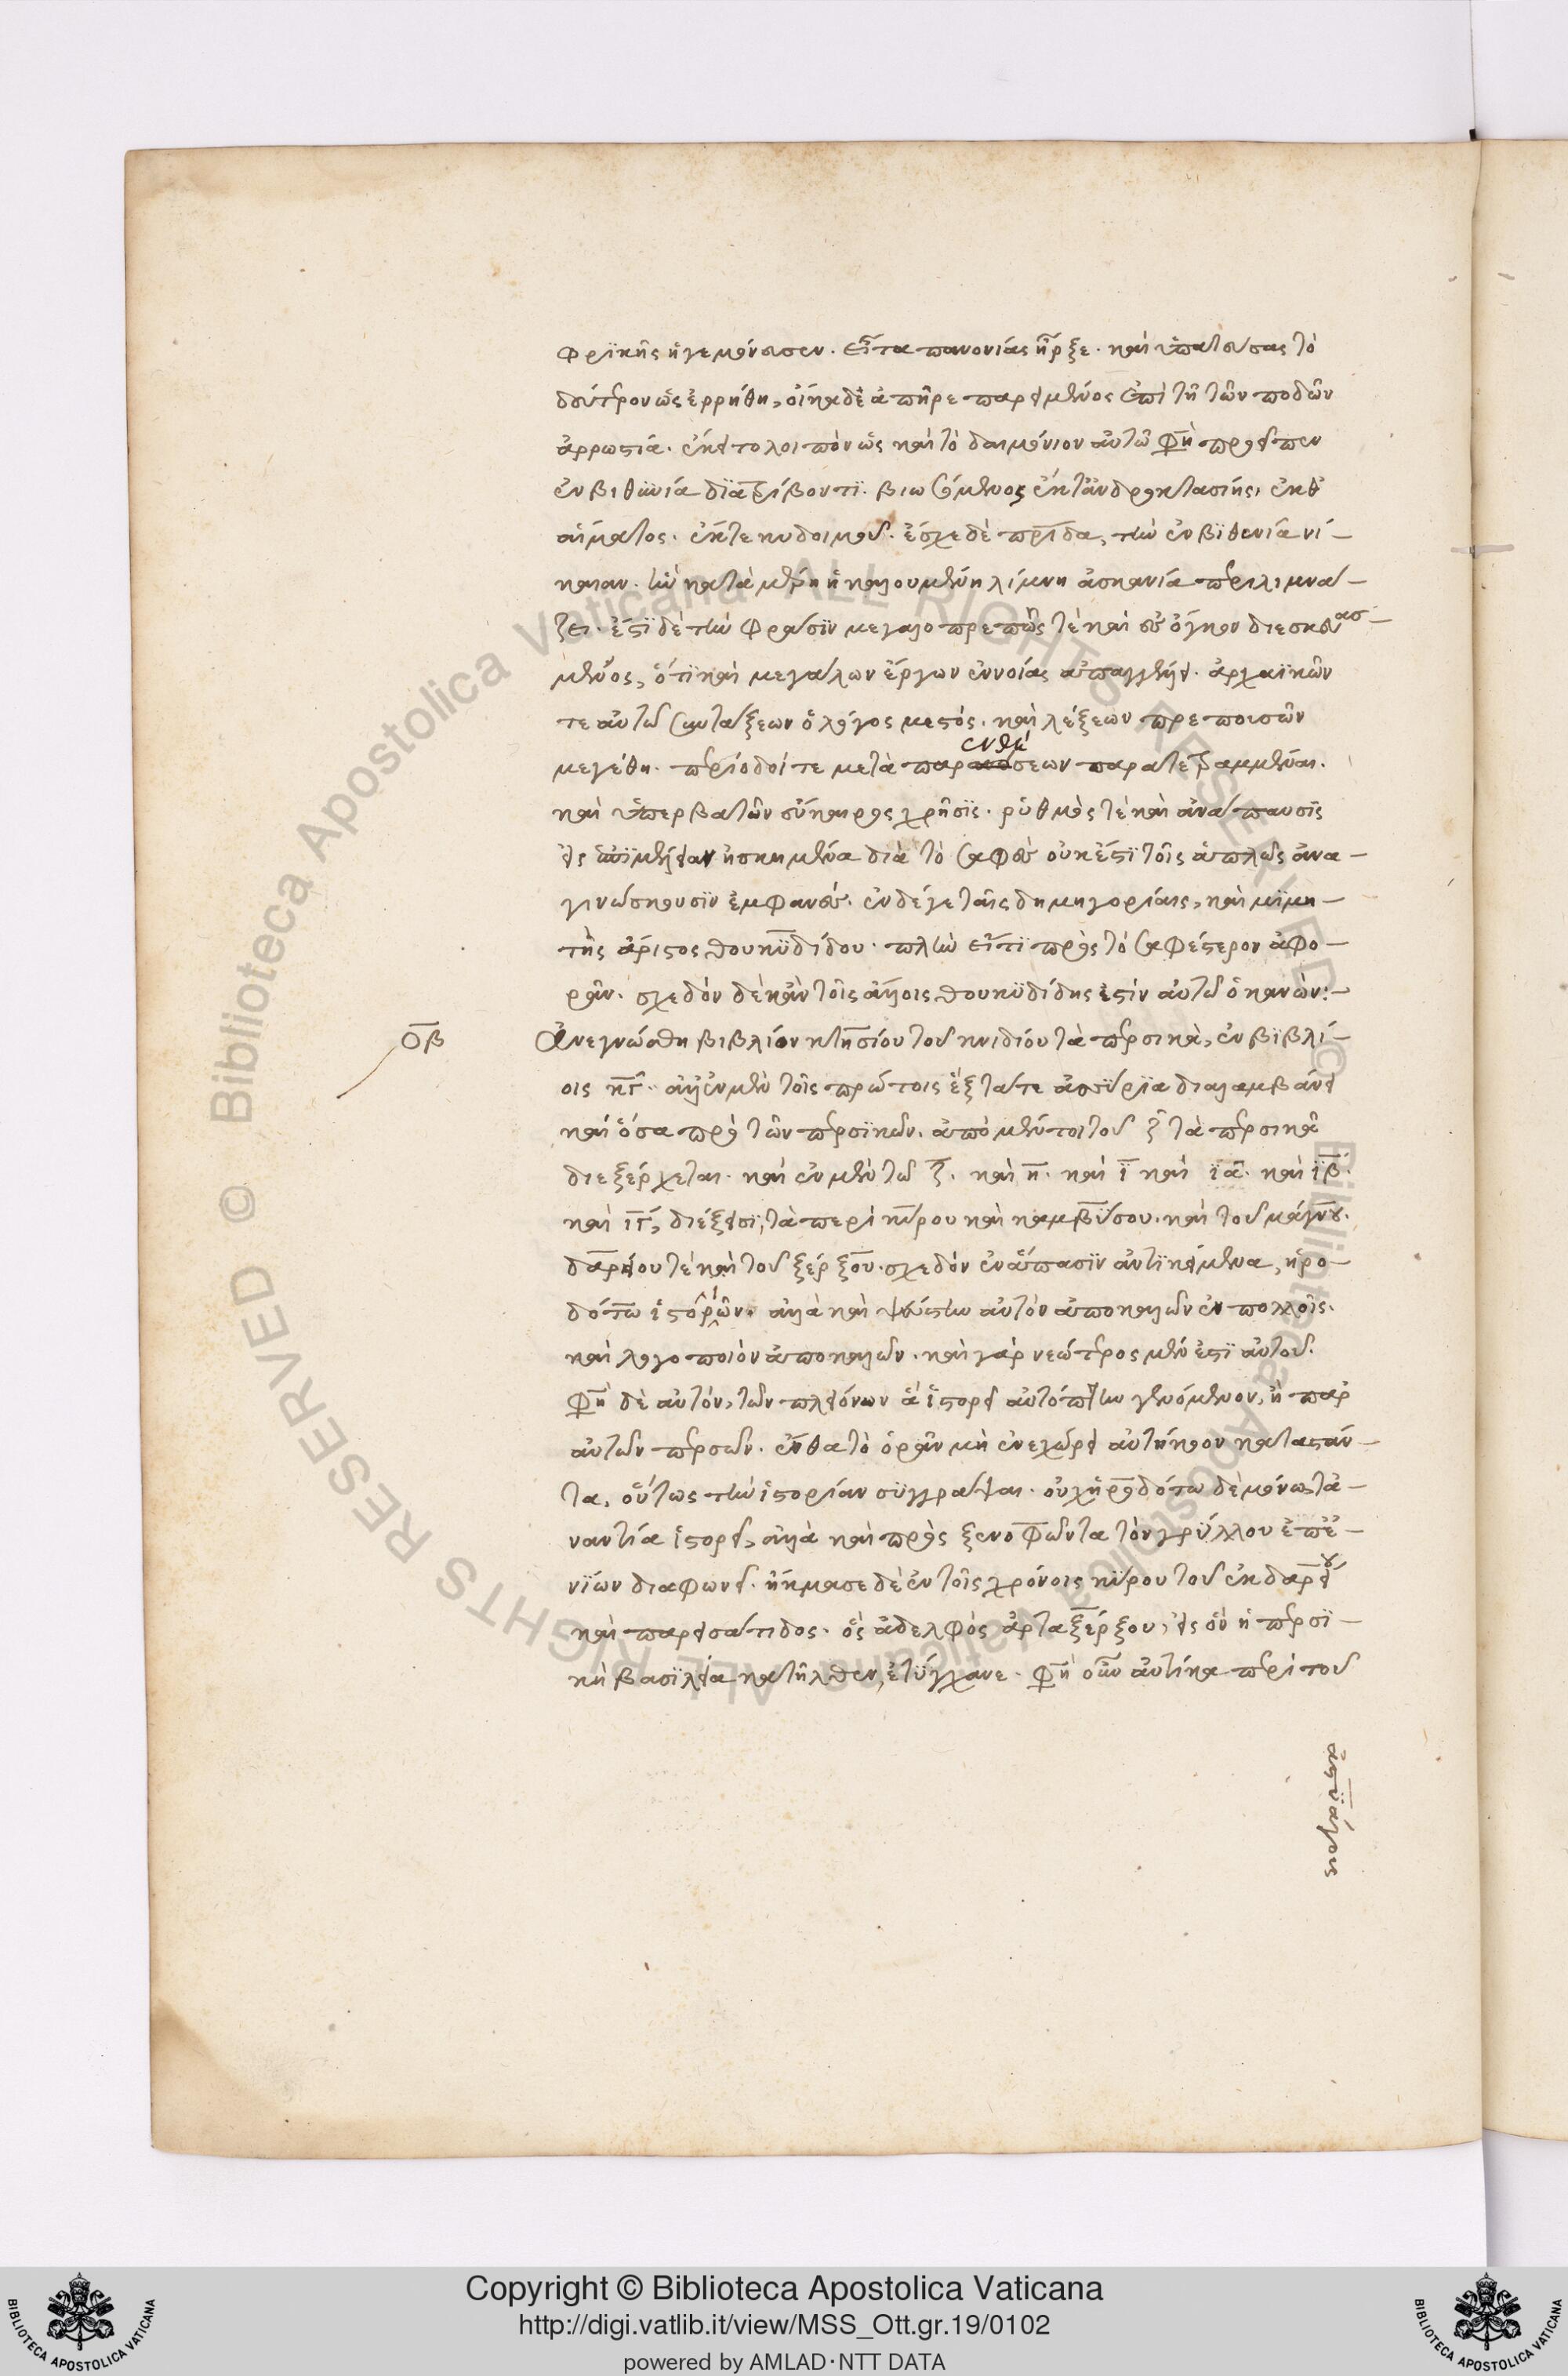 φρϊκῆς ἡγεμόνευσεν. εἶτα πανονίας ἦρξε. καὶ ὑπατεύσας τὸ
δεύτερον ὡς ἐρρήθη, οἴκαδε ἀπῆρε παρειμένος ἐπὶ τῇ τῶν ποδῶν
ἀρρωστία. ἐκεῖ τολοιπὸν ὡς καὶ τὸ δαιμόνιον αὐτῶ φησὶ προεῖπεν
ἐν βιθυνία διατρίβοντϊ. βιωσόμενος ἔκτ' ἀνδροκτασίης, ἐκθ'
αἵματος. ἔκτε κυδοιμοῦ. ἔσχε δὲ πατρίδα, τὴν ἐν βϊθυνία νί–
καιαν. ἣν κατὰ μέρη ἡ καλουμένη λίμνη ἀσκανία περιλιμνά–
ζει. ἔστϊ δὲ τὴν φράσϊν μεγαλοπρεπῶς τὲ καὶ εἰς ὄγκον διεσκευασ–
μένος, ὅτϊ καὶ μεγάλων ἔργων ἐννοίας ἀπαγγέλει. ἀρχαϊκῶν
τε αὐτῶ συντάξεων ὁ λόγος μεστός. καὶ λέξεων πρεπουσῶν
μεγέθη. περίοδοί τε μετὰ παρενθέσεων παρατεταμμέναι.
καὶ ὑπερβατῶν εὔκαιρος χρῆσϊς. ῥυθμός τὲ καὶ ἀνάπαυσϊς
εἰς ἐπϊμέλειαν ἠσκημένα διὰ τὸ σαφὲς οὐκ ἔστϊ τοῖς ἁπλῶς ἀνα–
γινώσκουσϊν ἐμφανές. ἐν δέ γε ταῖς δημηγορίαις, καὶ μϊμη–
τὴς ἄριστος θουκϋδίδου. πλὴν εἴ τϊ πρὸς τὸ σαφέστερον ἀφο–
ρᾶν. σχεδὸν δὲ κἀν τοῖς ἄλλοις θουκϋδίδης ἐστὶν αὐτῶ ὁ κανών:–
ΟΒ Ἀνεγνώσθη βιβλίον κτησίου τοῦ κνιδίου τὰ περσικὰ, ἐν βϊβλί–
οις κγ. ἀλλ' ἐν μὲν τοῖς πρώτοις ἓξ τάτε ἀσσύρϊα διαλαμβάνει
καὶ ὅσα πρὸ τῶν περσϊκῶν. ἀπὸ μέντοι τοῦ ζ τὰ περσικὰ
διεξέρχεται. καὶ ἐν μὲν τῶ ζ. καὶ η. καὶ ι καὶ ια. καὶ ιβ.
καὶ ιγ, διέξεισϊ, τὰ περὶ κύρου καὶ καμβύσου. καὶ τοῦ μάγου.
δαρείου τὲ καὶ τοῦ ξέρξου. σχεδὸν ἐν ἅπασϊν ἀντϊκείμενα, ἡρο–
δότω ἱστορῶν. ἀλλὰ καὶ ψεύστην αὐτὸν ἀποκαλῶν ἐν πολλοῖς.
καὶ λογοποιὸν ἀποκαλῶν. καὶ γὰρ νεώτερος μέν ἐστϊ αὐτοῦ.
φησὶ δὲ αὐτόν, τῶν πλειόνων ἃ ἱστορεῖ αὐτόπτην γενόμενον, ἢ παρ'
αὐτῶν περσῶν. ἔνθα τὸ ὁρᾶν μὴ ἐνεχώρει αὐτήκοον καταστάν–
τα, οὕτως τὴν ἱστορίαν συγγράψαι. οὐχ ἡροδότω δὲ μόνω τἀ–
ναντία ἱστορεῖ, ἀλλὰ καὶ πρὸς ξενοφῶντα τὸν γρύλλου ἐπ' ἐ–
νΐων διαφωνεῖ. ἤκμασε δὲ ἐν τοῖς χρόνοις κύρου τοῦ ἐκ δαρείου
καὶ παρεισάτιδος. ὃς ἀδελφὸς ἀρταξέρξου, εἰς ὃν ἡ περσϊ–
κὴ βασϊλεία κατῆλθεν, ἐτύγχανε. φησὶν οὖν αὐτίκα περὶ τοῦ
ἀστϋάγους
Copyright © Biblioteca Apostolica Vaticana
http://digi.vatlib.it/view/MSS_Ott.gr.19/0102
powered by AMLAD·NTT DATA